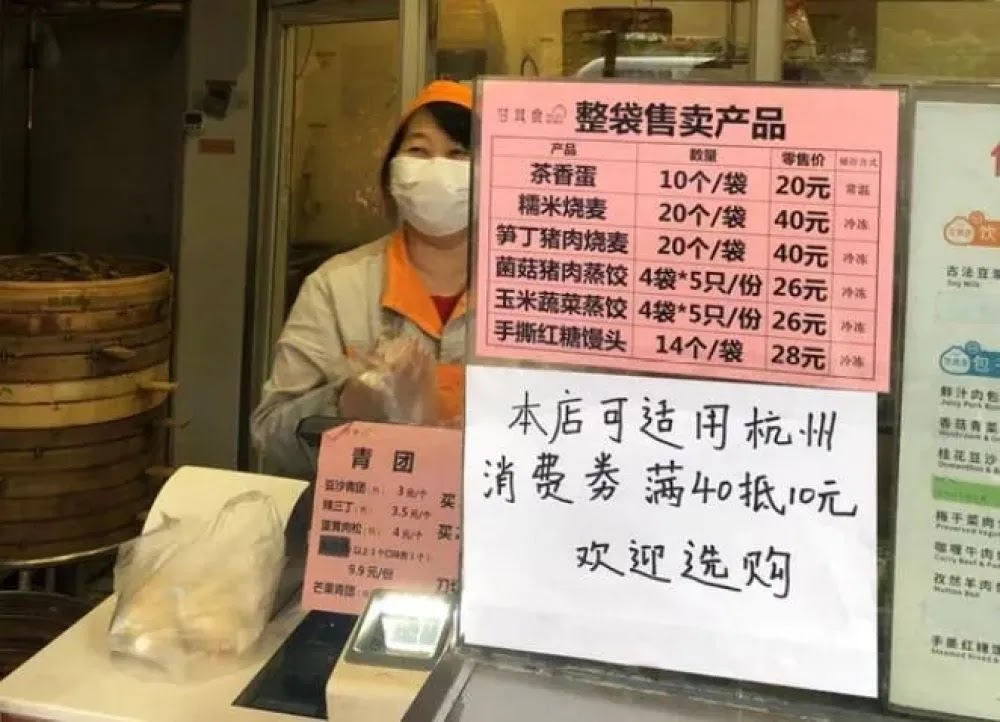 甘其食 整袋售卖产品
产品 数量 零售价 储存方式
茶香蛋 10个/袋 20元 常温
糯米烧麦 20个/袋 40元 冷冻
笋丁猪肉烧麦 20个/袋 40元 冷冻
菌菇猪肉蒸饺 4袋*5只/份 26元 冷冻
玉米蔬菜蒸饺 4袋*5只/份 26元 冷冻
手撕红糖馒头 14个/袋 28元 冷冻
本店可适用杭州
消费券 满40抵10元
欢迎选购
青团
豆沙青团 3元/个 买
辣三丁 3.5元/个
蛋黄肉松 4元/个 买
9.9元/份
芒果青团
饮
古法豆
Soy Milk
包
鲜汁肉包
香菇青菜
桂花豆沙
梅干菜肉
咖喱牛肉
孜然羊肉
Mutton Bun
手撕红糖